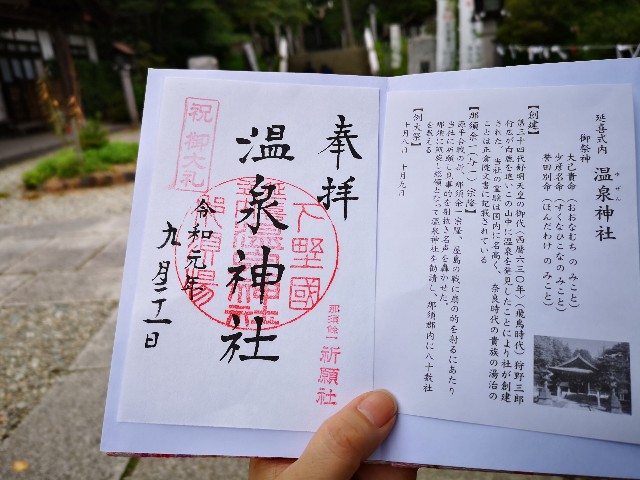 延喜式内 温泉神社
ゆぜん
御祭神
大己貴命(おおなむち のみこと)
少彦名命(すくなひこなのみこと)
誉田別命(ほんだわけ のみこと)
【創建】
第三十四代舒明天皇の御代(西暦六三〇年)(飛鳥時代)狩野三郎
行広が白鹿を追いこの山中に温泉を発見したことにより社が創建
された。当社の霊験は国内に名高く、奈良時代の貴族の湯治の
ことは正倉院文書に記載されている
【那須余一(与一)宗隆】
源平合戦の砌、那須余一宗隆、屋島の戦に扇の的を射るにあたり
当社に祈願し見事的を射抜き名声を轟かせた。
那須に凱旋し総領となって温泉神社を勧請し那須郡内に八十数社
を数える
【例大祭】
十月八日 十月九日
奉拝
下野國
温泉神社
那須湯
令和元年
九月二十一日
祝 御大礼
那須余一
祈願社